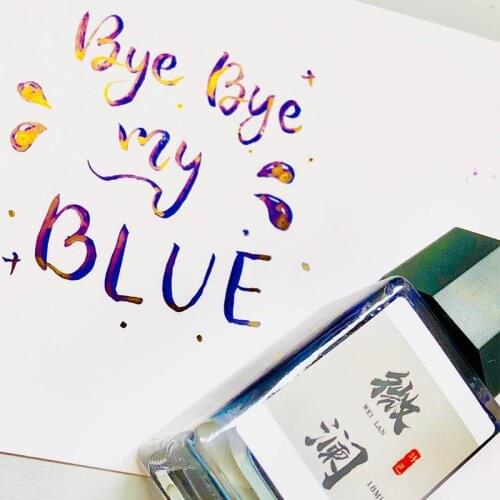 Bye Bye
my
BLUE
微
WEI LAN
澜
18M